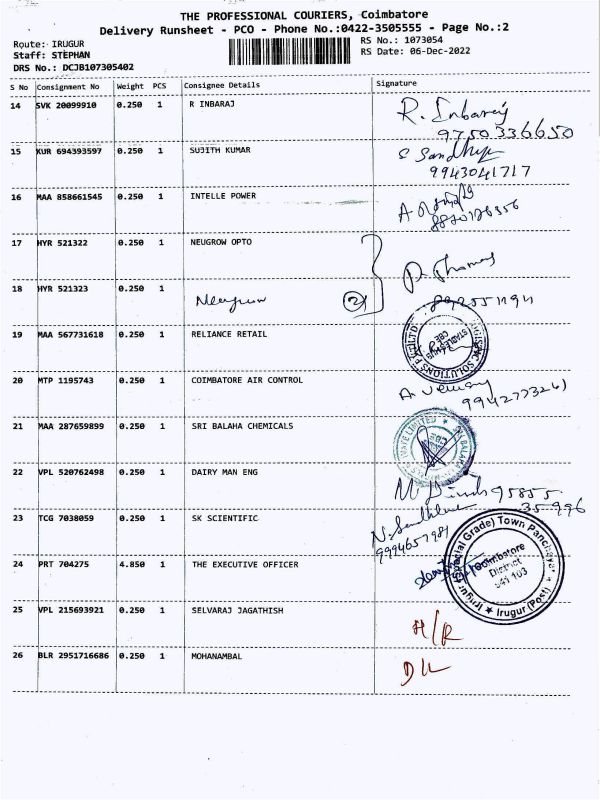 THE PROFESSIONAL COURIERS, Coimbatore
Delivery Runsheet - PCO - Phone No.:0422-3505555 - Page No.:2
Route: IRUGUR
RS No.: 1073054
Staff: STEPHAN
RS Date: 06-Dec-2022
DRS No.: DCJB107305402
S No Consignment No Weight PCS Consignee Details Signature
14 SVK 20099910 0.250 1 R INBARAJ R. Inbaraj
9750336650
15 KUR 694393597 0.250 1 SUJITH KUMAR
9943041717
16 MAA 858661545 0.250 1 INTELLE POWER
17 HYR 521322 0.250 1 NEUGROW OPTO
18 HYR 521323 0.250 1 Neugrow 2
19 MAA 567731618 0.250 1 RELIANCE RETAIL
20 MTP 1195743 0.250 1 COIMBATORE AIR CONTROL
21 MAA 287659899 0.250 1 SRI BALAHA CHEMICALS
22 VPL 520762498 0.250 1 DAIRY MAN ENG
23 TCG 7038059 0.250 1 SK SCIENTIFIC
24 PRT 704275 4.850 1 THE EXECUTIVE OFFICER
(Special Grade) Town Panchayat
Coimbatore
District
641 103
Irugur (Post)
25 VPL 215693921 0.250 1 SELVARAJ JAGATHISH
26 BLR 2951716686 0.250 1 MOHANAMBAL